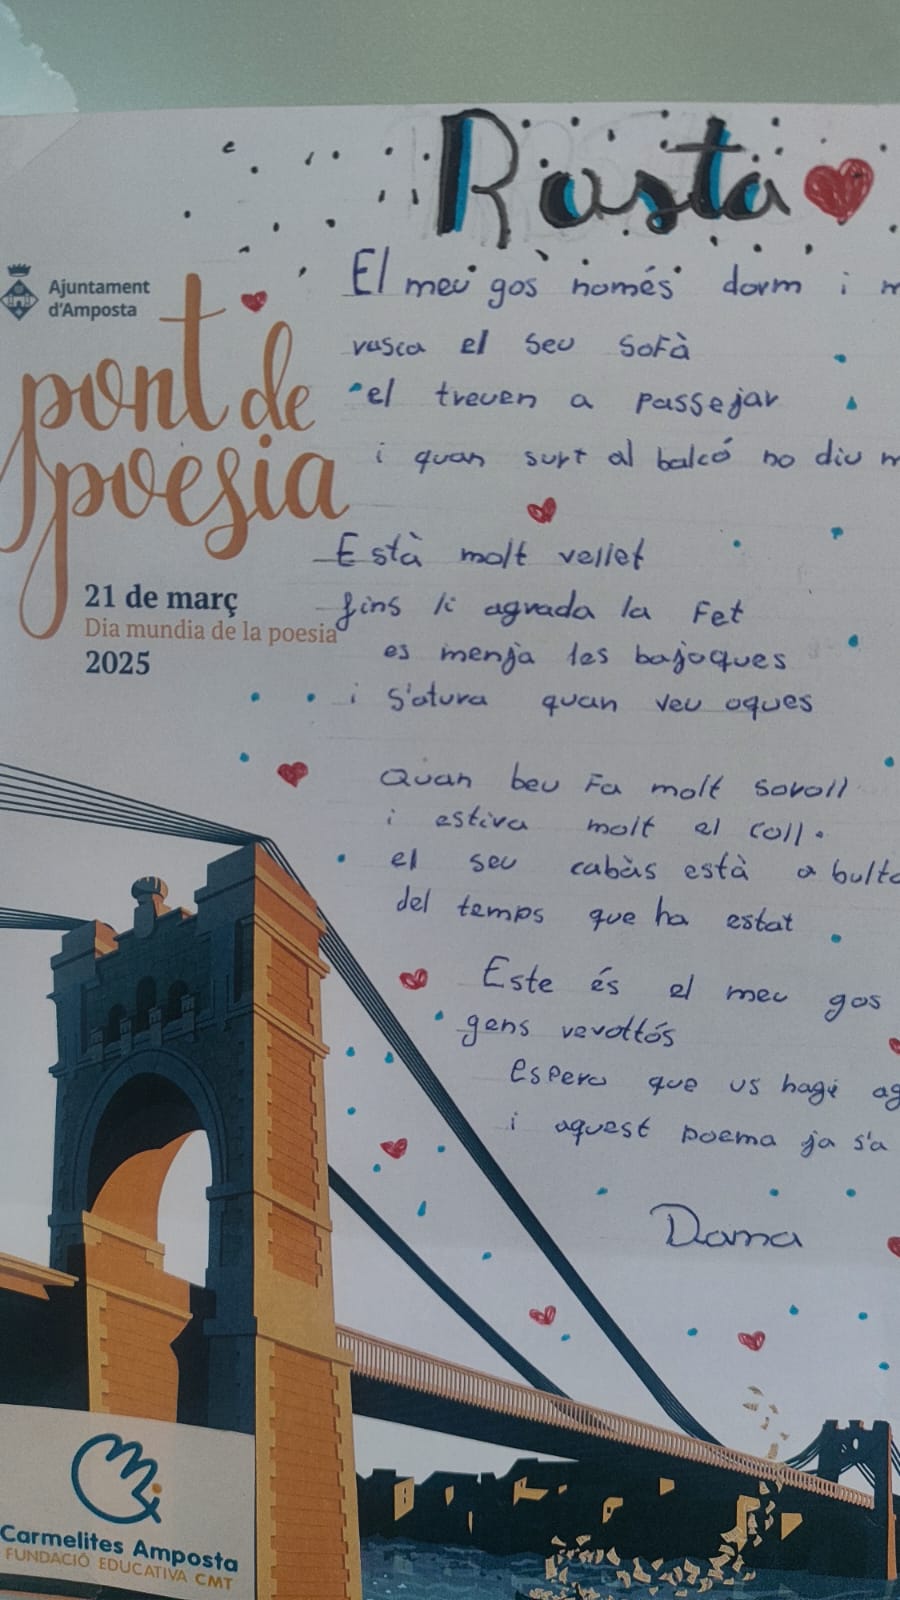 Rasta
Ajuntament
d'Amposta
pont de
poesia
21 de març
Dia mundia de la poesia
2025
El meu gos només dorm i m
vusca el seu sofà
el treuen a passejar
i quan surt al balcó no diu m
Està molt vellet
fins li agrada la Fet
es menja les bajoques
i s'atura quan veu oques
Quan beu Fa molt soroll
i estira molt el coll.
el seu cabàs està a bulto
del temps que ha estat
Este és el meu gos
gens
Espero que us hagi ag
i aquest poema ja s'a
Carmelites Amposta
FUNDACIÓ EDUCATIVA CMT